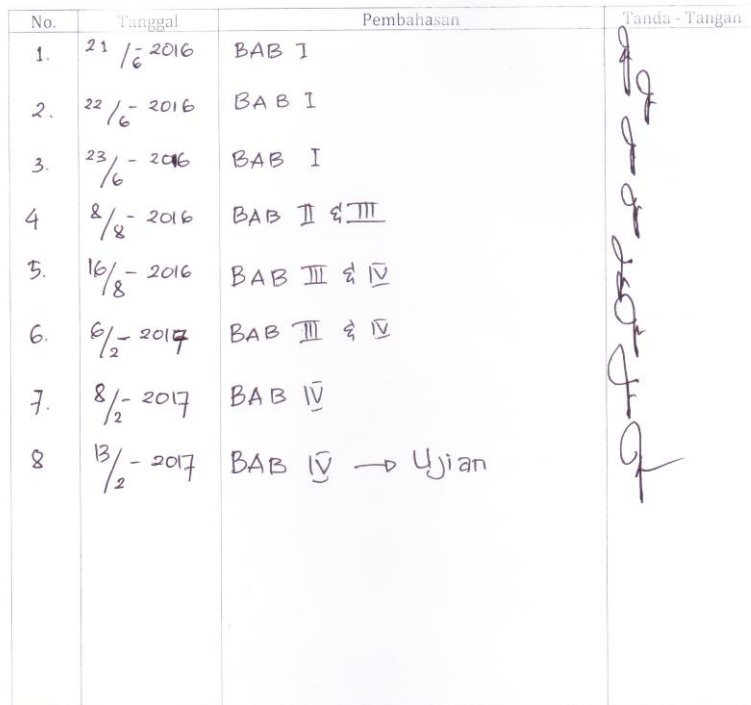 No. Tanggal Pembahasan Tanda - Tangan
1. 21/6 - 2016 BAB I
2. 22/6 - 2016 BAB I
3. 23/6 - 2016 BAB I
4 8/8 - 2016 BAB II & III
5. 16/8 - 2016 BAB III & IV
6. 6/2 - 2017 BAB III & IV
7. 8/2 - 2017 BAB IV
8 13/2 - 2017 BAB IV → Ujian